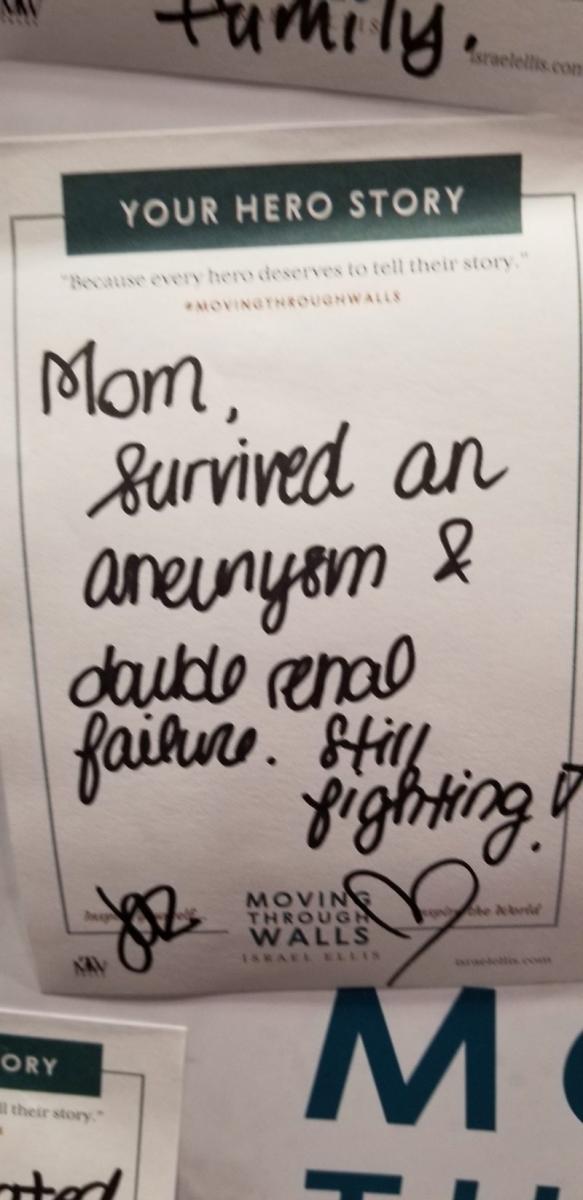 family.
israelellis.com
YOUR HERO STORY
"Because every hero deserves to tell their story."
#MOVINGTHROUGHWALLS
Mom,
survived an
aneunysm &
double renal
failure. Still
fighting.
MOVING
THROUGH
WALLS
ISRAEL ELLIS
Inspire the World
israelellis.com
ORY
ll their story."
M